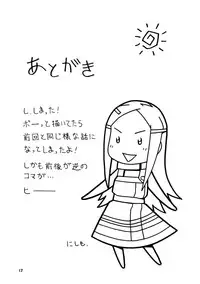 あとがき
し、しまった!
ボーっと描いてたら
前回と同じ様な話に
なってしまったよ!
しかも前後が逆の
コマが…
ヒ――
にしも.